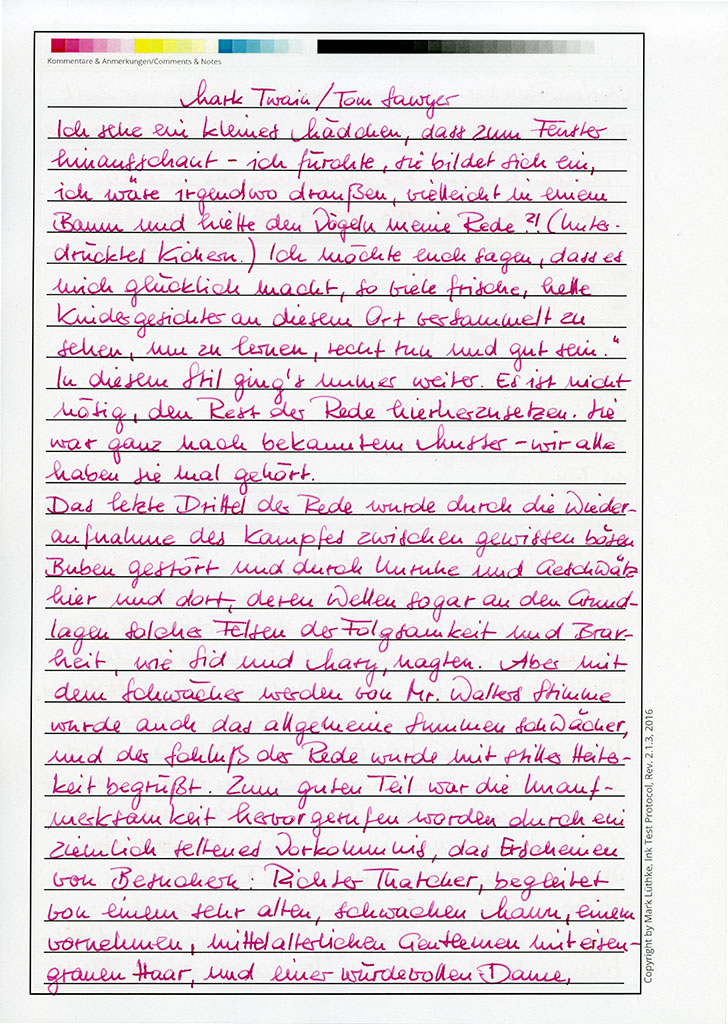 Kommentare & Anmerkungen/Comments & Notes
Mark Twain / Tom Sawyer
Ich sehe ein kleines Mädchen, dass zum Fenster
hinausschaut - ich fürchte, sie bildet sich ein,
ich wäre irgendwo draußen, vielleicht in einem
Baum und hielte den Vögeln meine Rede?! (Unter-
drücktes Kichern.) Ich möchte euch sagen, dass es
mich glücklich macht, so viele frische, helle
Kindergesichter an diesem Ort versammelt zu
sehen, um zu lernen, recht tun und gut sein."
In diesem Stil ging's immer weiter. Es ist nicht
nötig, den Rest der Rede hierherzusetzen. Sie
war ganz nach bekanntem Muster - wir alle
haben sie mal gehört.
Das letzte Drittel der Rede wurde durch die Wieder-
aufnahme des Kampfes zwischen gewissen bösen
Buben gestört und durch Unruhe und Geschwätz
hier und dort, deren Wellen sogar an den Grund-
lagen solcher Felsen der Folgsamkeit und Brav-
heit, wie Sid und Mary, nagten. Aber mit
dem Schwächer werden von Mr. Walters Stimme
wurde auch das allgemeine Summen schwächer,
und der Schluß der Rede wurde mit stiller Heiter-
keit begrüßt. Zum guten Teil war die Unauf-
merksamkeit hervorgerufen worden durch ein
ziemlich seltenes Vorkommnis, das Erscheinen
von Besuchern: Richter Thatcher, begleitet
von einem sehr alten, schwachen Mann, einem
vornehmen, mittelalterlichen Gentlemen mit eisen-
grauen Haar, und einer würdevollen Dame,
Copyright by Mark Lüthke, Ink Test Protocol, Rev. 2.1.3, 2016